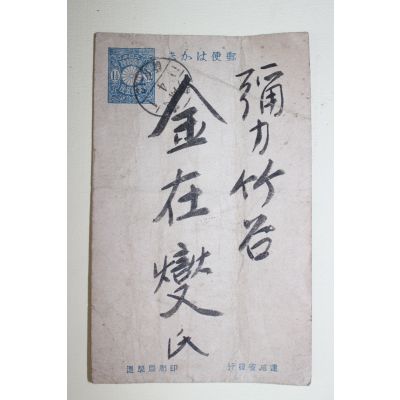 郵便はかき
彌力竹谷
金在燮氏
遞信省發行
印刷局製造